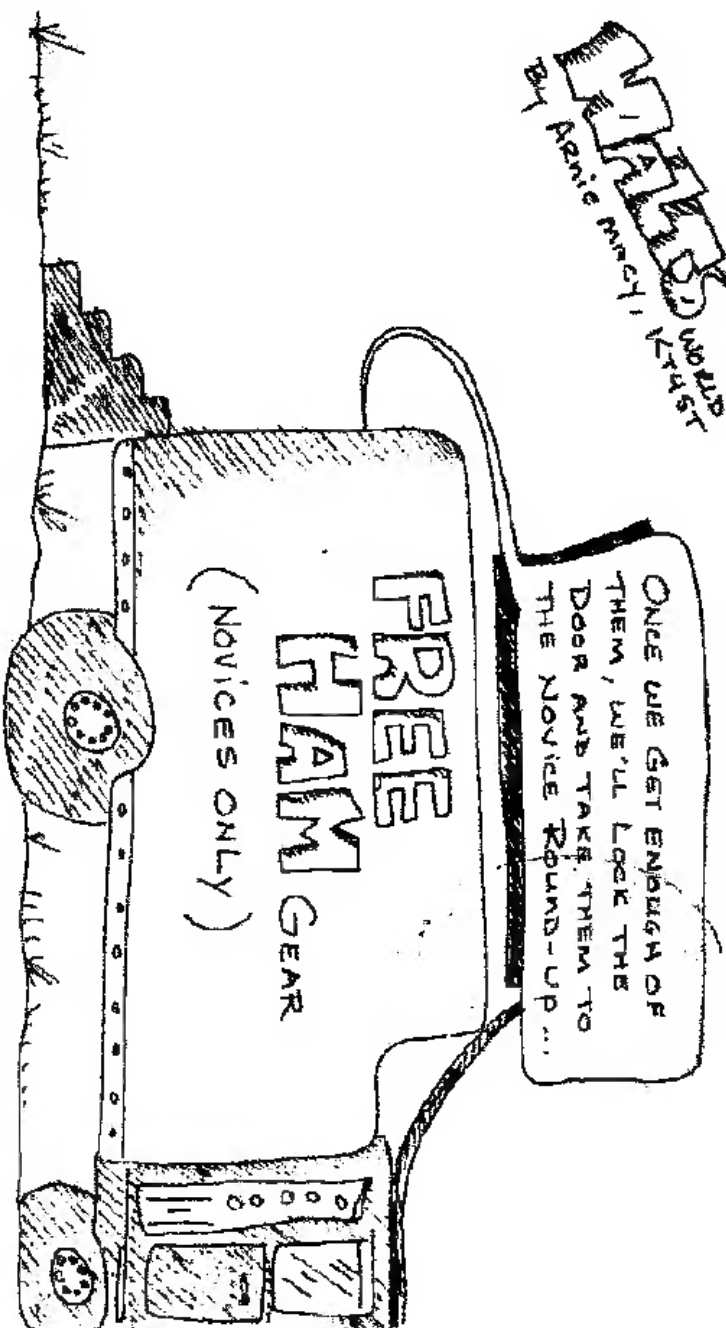 HALS' WORLD
By ARNIE MACY, KT4ST
ONCE WE GET ENOUGH OF
THEM, WE'LL LOCK THE
DOOR AND TAKE THEM TO
THE NOVICE ROUND-UP...
FREE
HAM GEAR
(NOVICES ONLY)